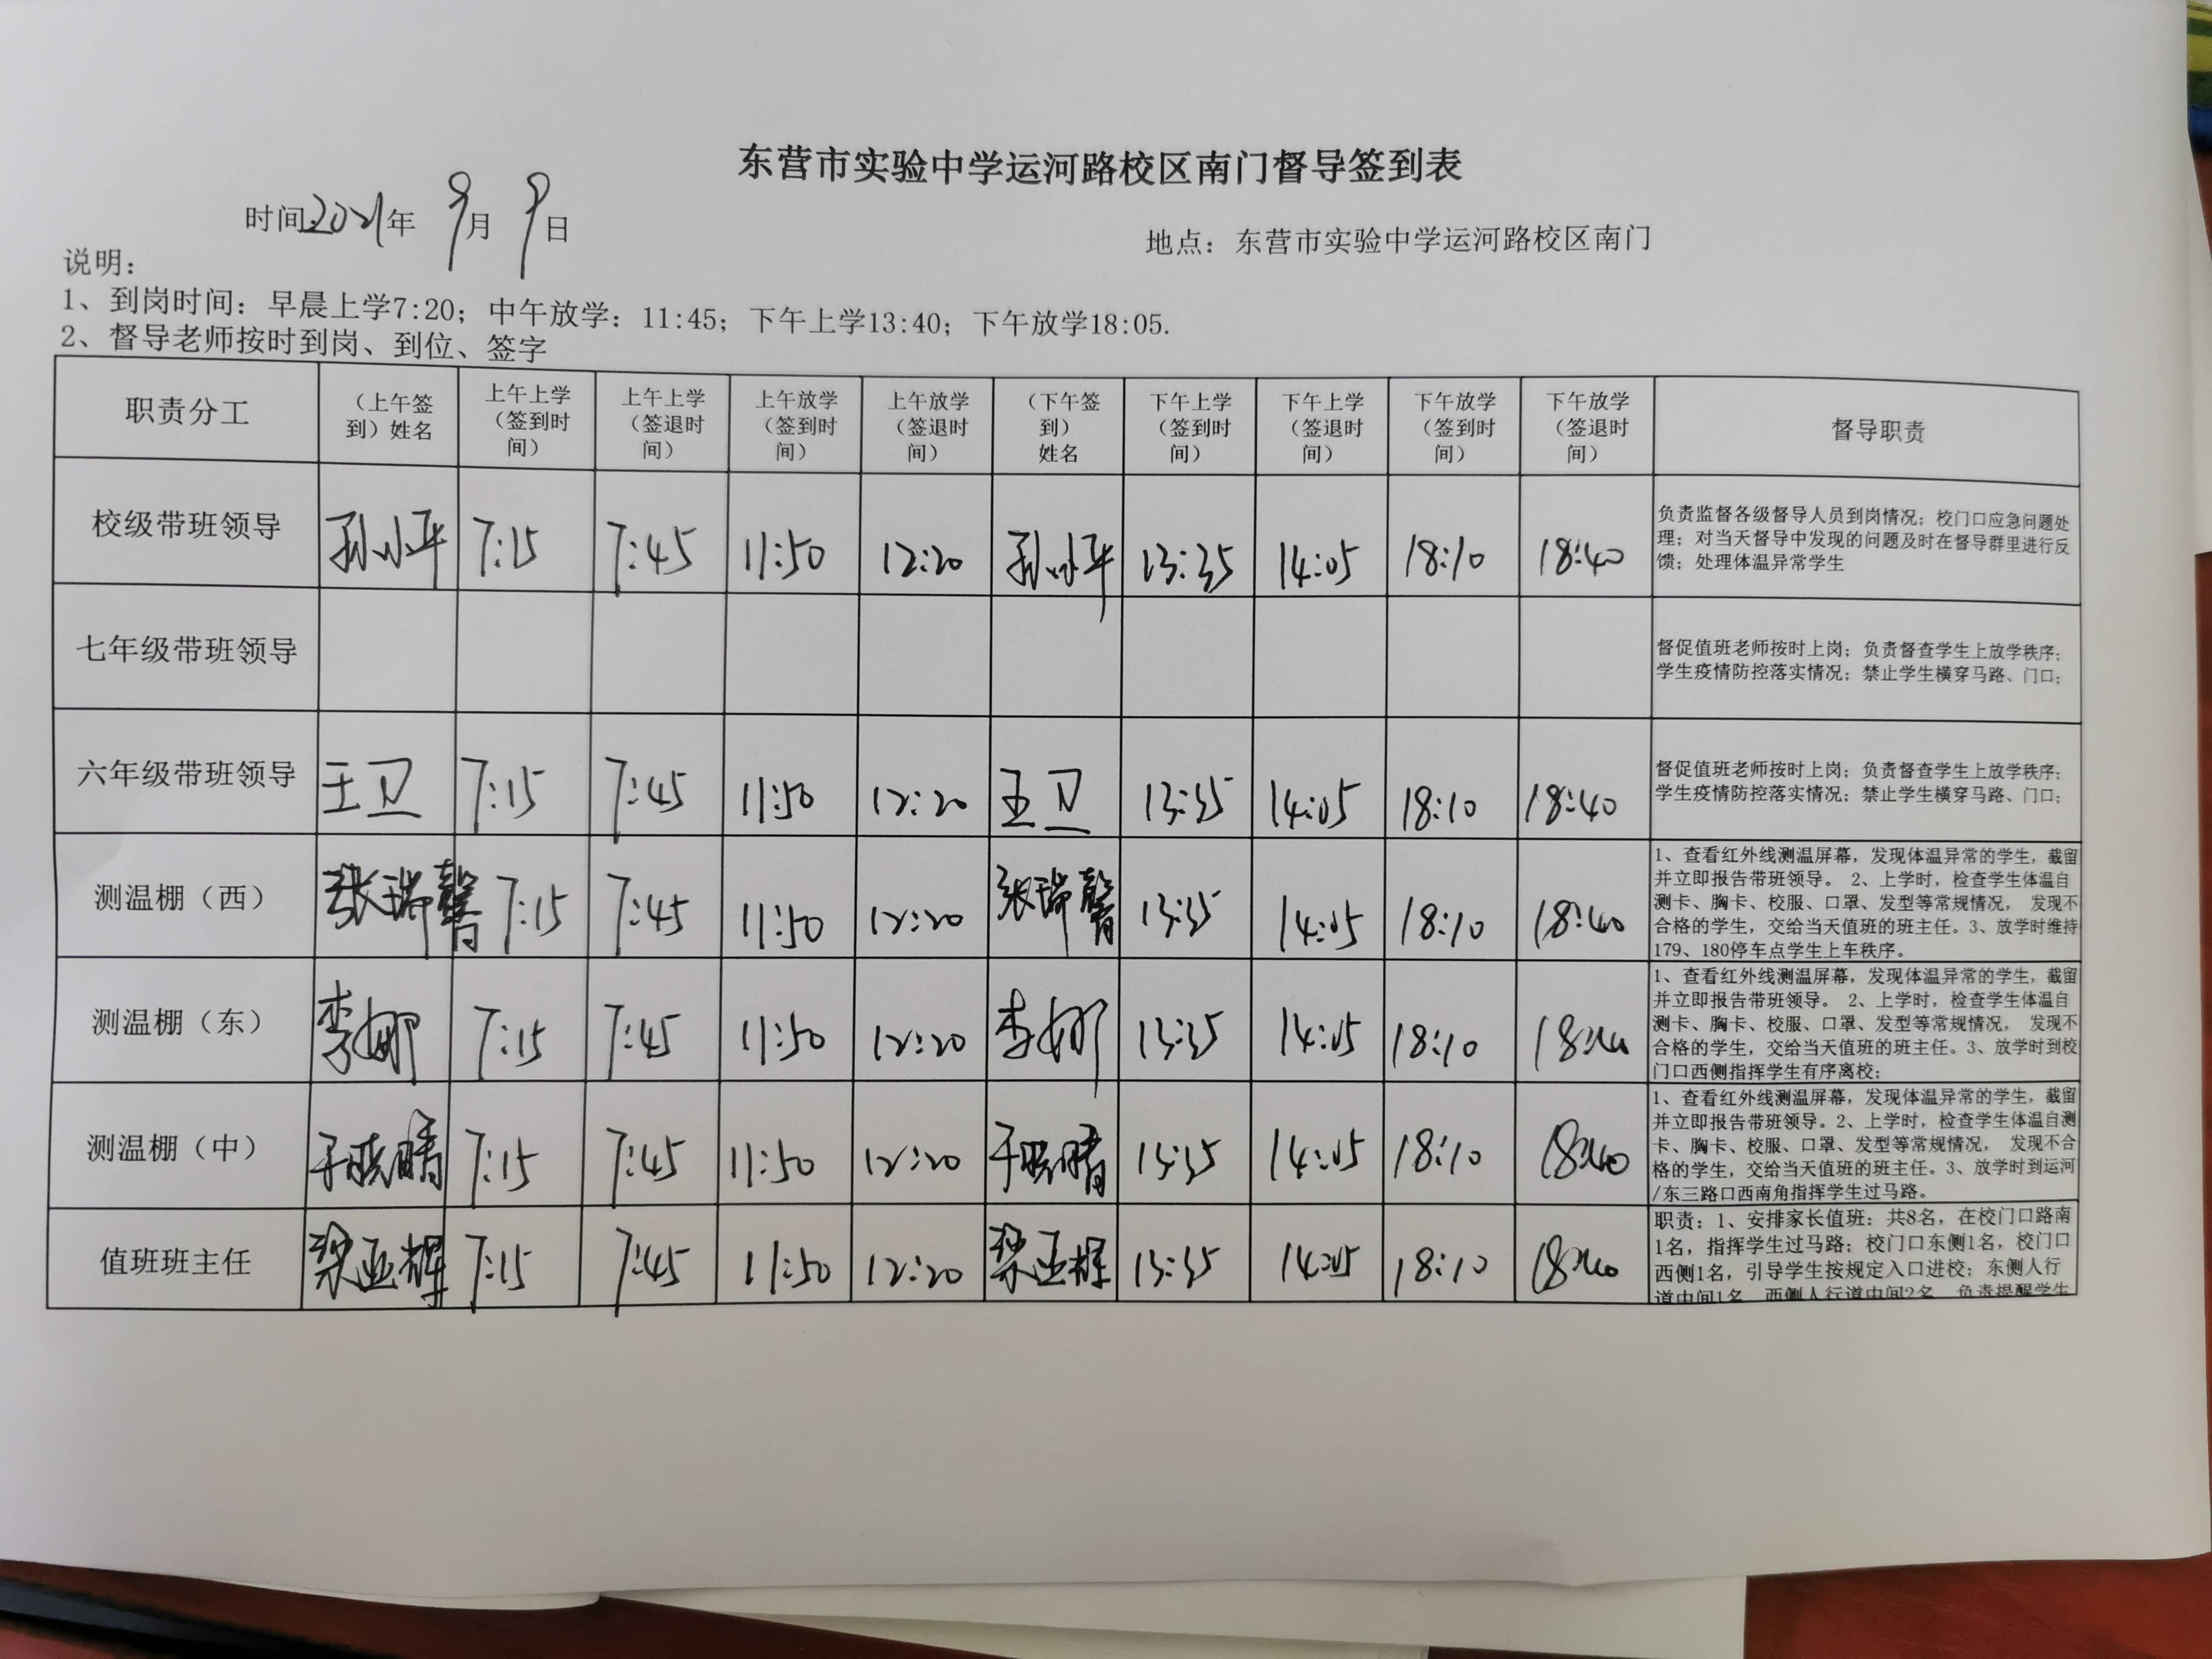 东营市实验中学运河路校区南门督导签到表
时间2021年 9月 9日
地点：东营市实验中学运河路校区南门
说明：
1、到岗时间：早晨上学7:20；中午放学：11:45；下午上学13:40；下午放学18:05.
2、督导老师按时到岗、到位、签字
职责分工 （上午签到）姓名 上午上学（签到时间） 上午上学（签退时间） 上午放学（签到时间） 上午放学（签退时间） （下午签到）姓名 下午上学（签到时间） 下午上学（签退时间） 下午放学（签到时间） 下午放学（签退时间） 督导职责
校级带班领导 孙小平 7:15 7:45 11:50 12:20 孙小平 13:35 14:05 18:10 18:40
负责监督各级督导人员到岗情况；校门口应急问题处
理；对当天督导中发现的问题及时在督导群里进行反
馈；处理体温异常学生
七年级带班领导
督促值班老师按时上岗；负责督查学生上放学秩序；
学生疫情防控落实情况；禁止学生横穿马路、门口；
六年级带班领导 王卫 7:15 7:45 11:50 12:20 王卫 13:35 14:05 18:10 18:40
督促值班老师按时上岗；负责督查学生上放学秩序；
学生疫情防控落实情况；禁止学生横穿马路、门口；
测温棚（西） 张瑞馨 7:15 7:45 11:50 12:20 张瑞馨 13:35 14:05 18:10 18:40
1、查看红外线测温屏幕，发现体温异常的学生，截留
并立即报告带班领导。 2、上学时，检查学生体温自
测卡、胸卡、校服、口罩、发型等常规情况， 发现不
合格的学生，交给当天值班的班主任。3、放学时维持
179、180停车点学生上车秩序。
测温棚（东） 李娜 7:15 7:45 11:50 12:20 李娜 13:35 14:05 18:10 18:40
1、查看红外线测温屏幕，发现体温异常的学生，截留
并立即报告带班领导。 2、上学时，检查学生体温自
测卡、胸卡、校服、口罩、发型等常规情况， 发现不
合格的学生，交给当天值班的班主任。3、放学时到校
门口西侧指挥学生有序离校；
测温棚（中） 于晓晴 7:15 7:45 11:50 12:20 于晓晴 13:35 14:05 18:10 18:40
1、查看红外线测温屏幕，发现体温异常的学生，截留
并立即报告带班领导。2、上学时，检查学生体温自测
卡、胸卡、校服、口罩、发型等常规情况， 发现不合
格的学生，交给当天值班的班主任。3、放学时到运河
/东三路口西南角指挥学生过马路。
值班班主任 梁亚辉 7:15 7:45 11:50 12:20 梁亚辉 13:35 14:05 18:10 18:40
职责：1、安排家长值班：共8名，在校门口路南
1名，指挥学生过马路；校门口东侧1名，校门口
西侧1名，引导学生按规定入口进校；东侧人行
道中间1名，西侧人行道中间2名，负责提醒学生